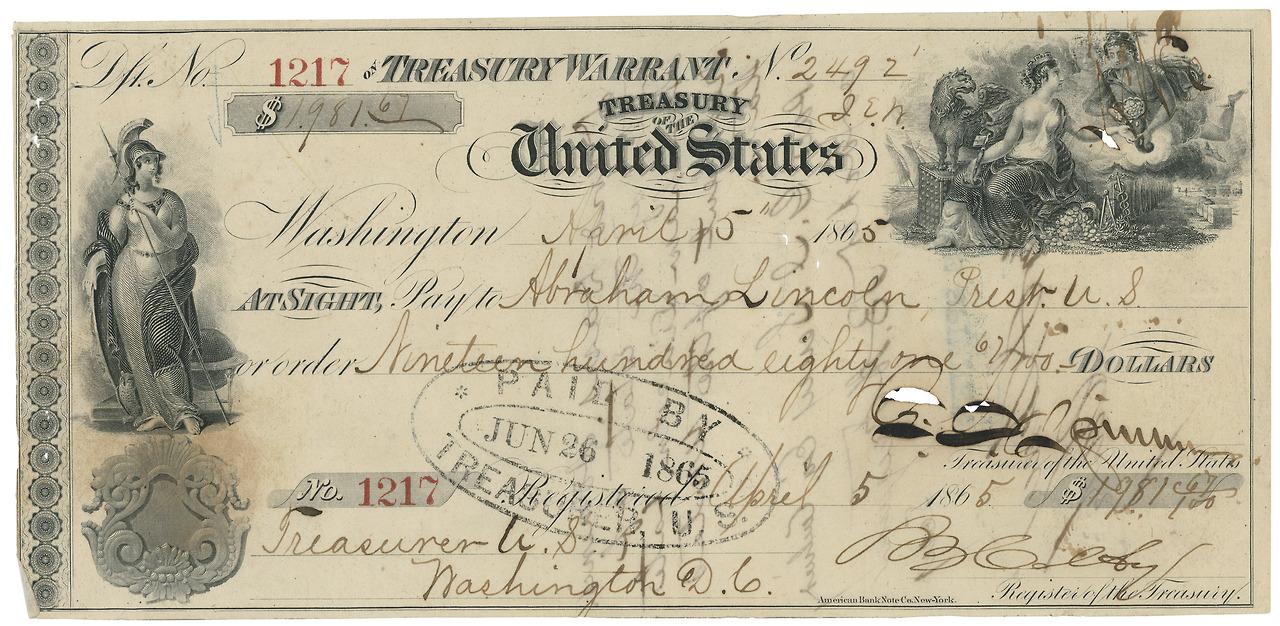 Dft. No. 1217 on TREASURY WARRANT No. 2492
$ 1,981.67
TREASURY
OF THE
United States
Washington April 5th 1865
AT SIGHT, Pay to Abraham Lincoln, Prest. U. S
or order Nineteen hundred eighty one 67/100 DOLLARS
PAID BY
JUN 26 1865
TREASURER, U. S.
Treasurer of the United States
No. 1217 Registered April 5 1865 $ 1981 67/100
Treasurer U. S.
Washington D. C.
American Bank Note Co. New-York.
Register of the Treasury.